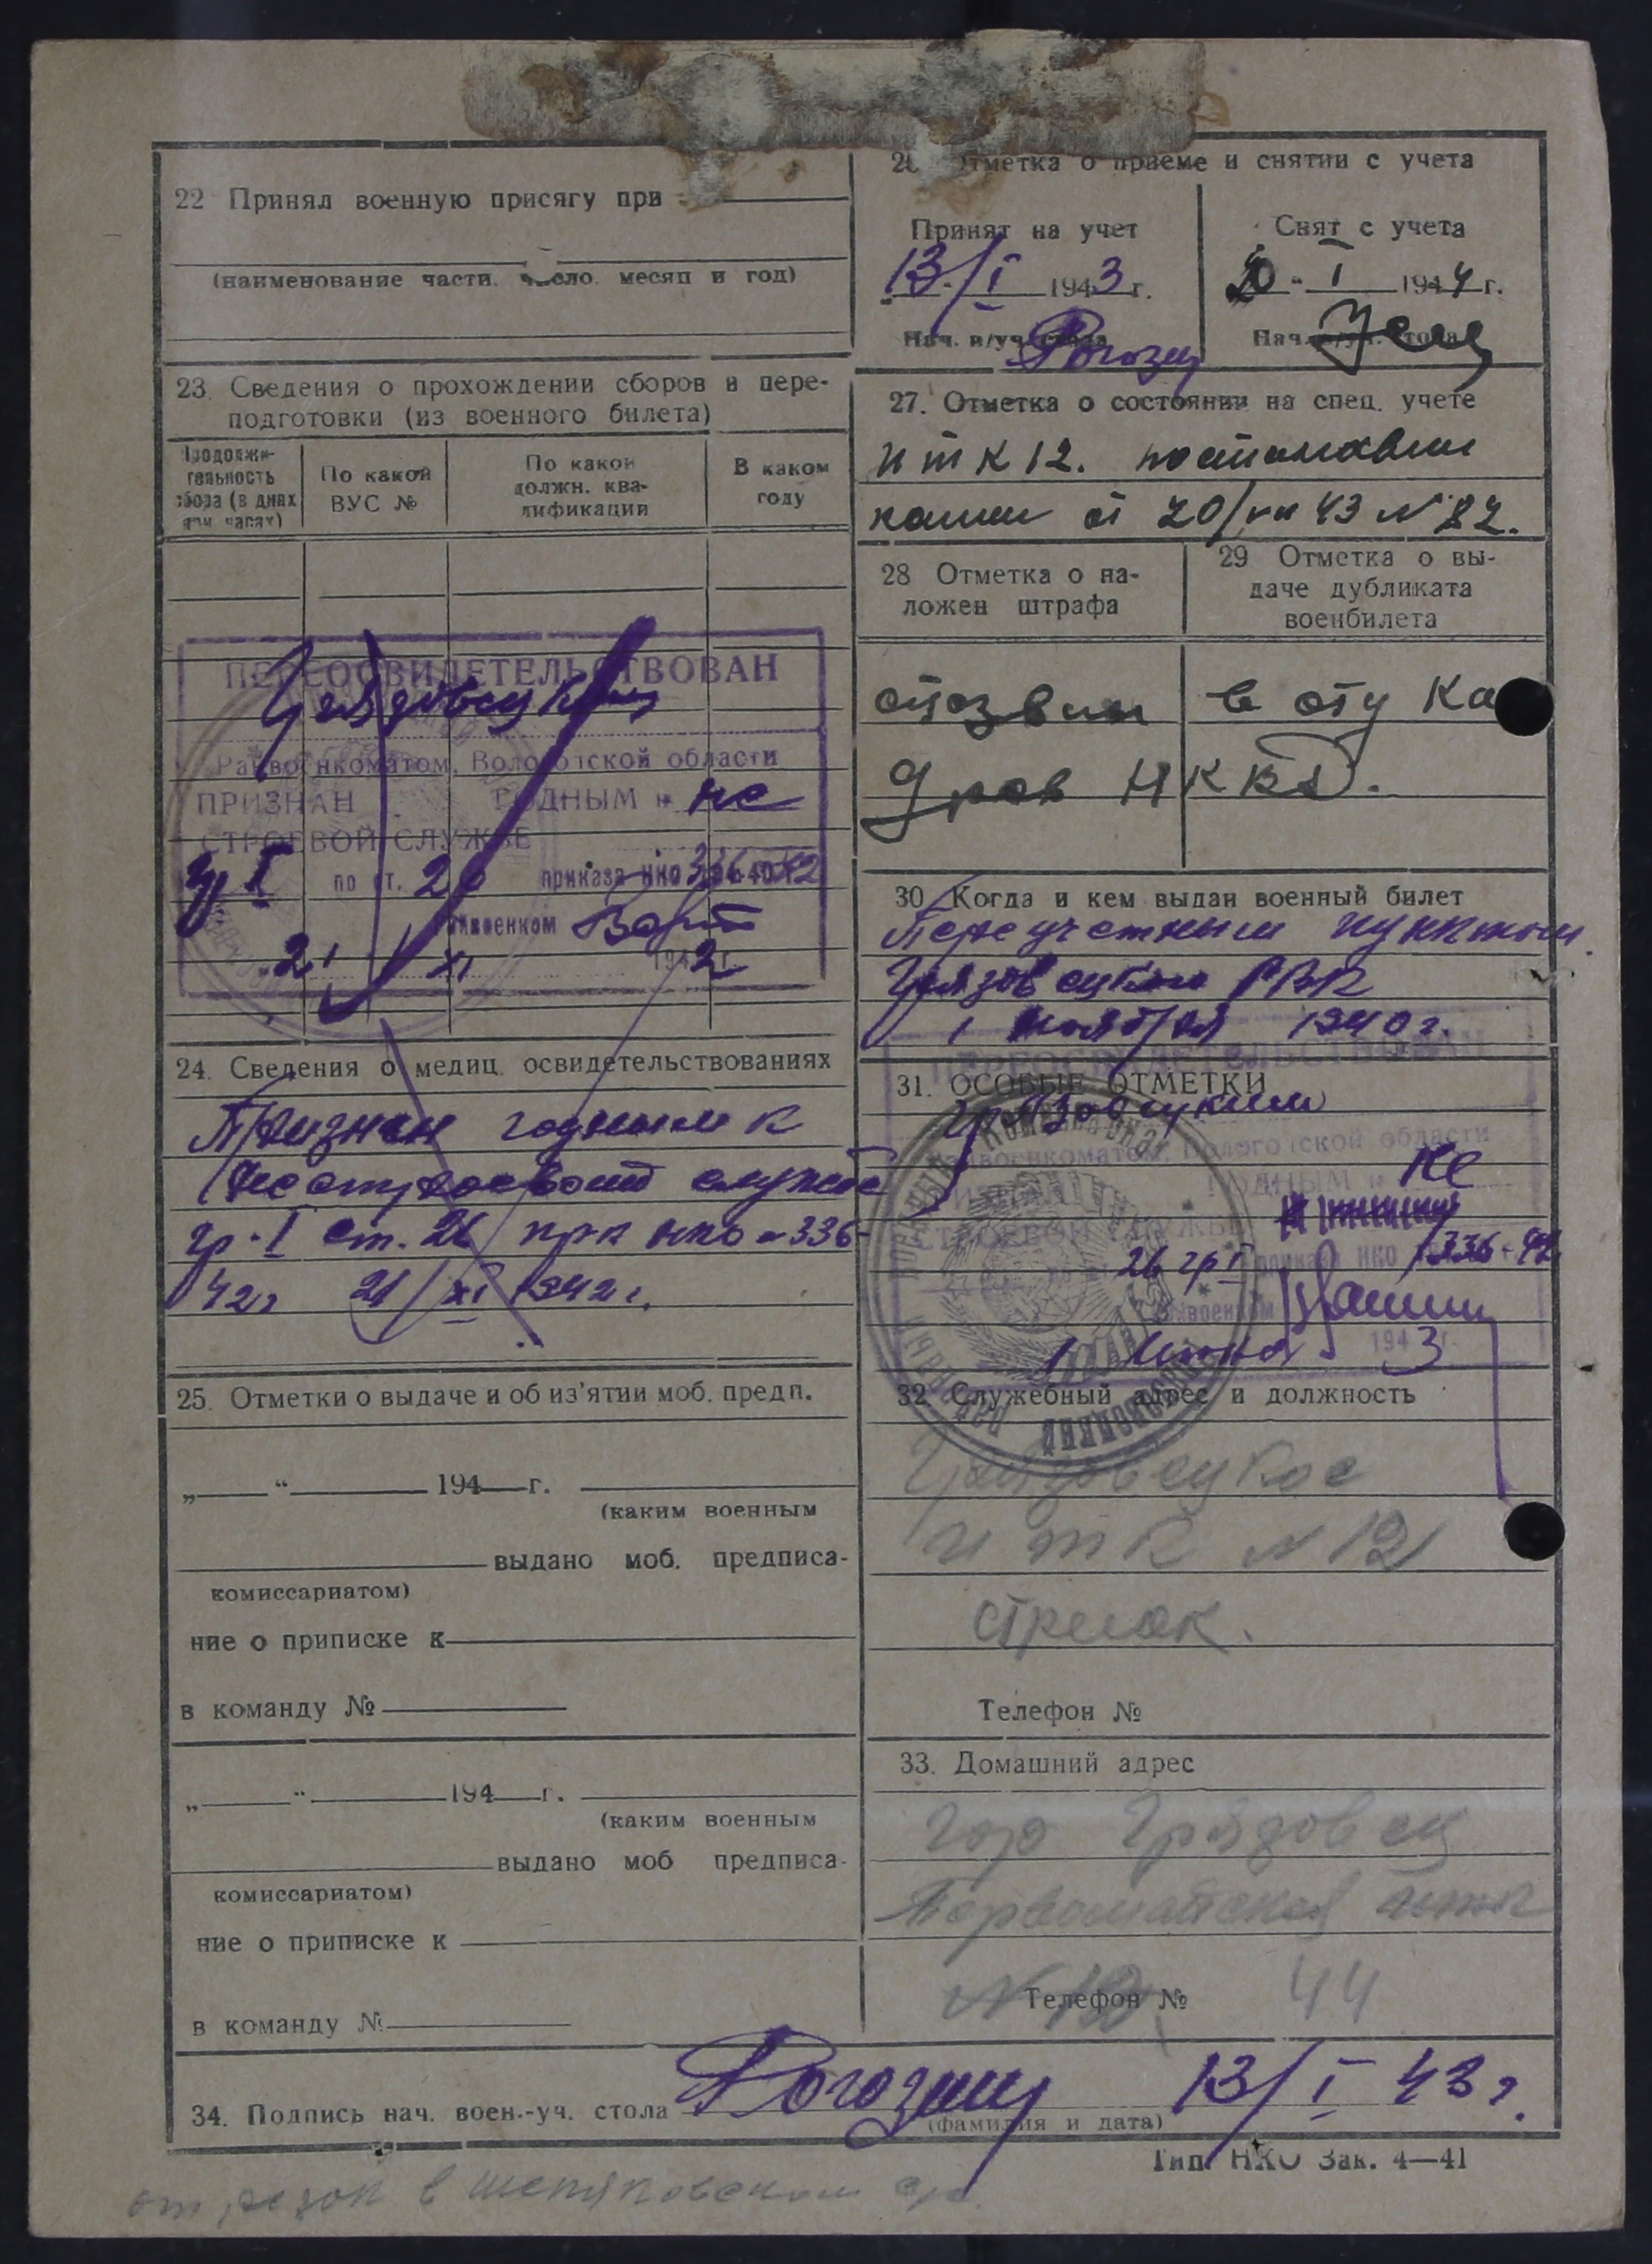 22 Принял военную присягу при
(наименование части, число, месяц и год)
23. Сведения о прохождении сборов и пере-
подготовки (из военного билета)
Продолжи-
тельность
сбора (в днях
или часах)
По какой
ВУС №
По какой
должн. ква-
лификации
В каком
году
ПЕРЕОСВИДЕТЕЛЬСТВОВАН
Грязовецким
Райвоенкоматом, Вологодской области
ПРИЗНАН ГОДНЫМ к не
СТРОЕВОЙ СЛУЖБЕ
гр I по ст. 26 приказа НКО 336 42
Райвоенком
21 XI 1942 г.
24. Сведения о медиц. освидетельствованиях
Признан годным к
нестроевой службе
гр. I ст. 26 пр. НКО № 336-
42 г 21/XI 1942 г.
25. Отметки о выдаче и об из'ятии моб. предп.
„ “ 194 г.
(каким военным
выдано моб. предписа-
комиссариатом)
ние о приписке к
в команду №
„ “ 194 г.
(каким военным
выдано моб предписа-
комиссариатом)
ние о приписке к
в команду №
26 Отметка о приеме и снятии с учета
Принят на учет
13/I 1943 г.
Нач. в/уч. стола
Снят с учета
20 “ I 1944 г.
Нач. в/уч. стола
27. Отметка о состоянии на спец. учете
ИТК 12.
от 20/VII 43 № 82.
28 Отметка о на-
ложен штрафа
29 Отметка о вы-
даче дубликата
военбилета
в оту Ка
дров НКВД.
30 Когда и кем выдан военный билет
Переучетным пунктом
Грязовецкого РВК
1 ноября 1940 г.
31. ОСОБЫЕ ОТМЕТКИ
ПЕРЕОСВИДЕТЕЛЬСТВОВАН
Грязовецким
Райвоенкоматом, Вологодской области
ПРИЗНАН ГОДНЫМ к не
СТРОЕВОЙ СЛУЖБЕ
26 гр I приказа НКО 336-42
Райвоенком
1 1943 г.
32. Служебный адрес и должность
Грязовецкое
ИТК № 12
стрелок.
Телефон №
33. Домашний адрес
гор Грязовец
Первомайская
Телефон № 44
34. Подпись нач. воен.-уч. стола Рогозин 13/I 43 г.
(фамилия и дата)
Тип. НКО Зак. 4—41